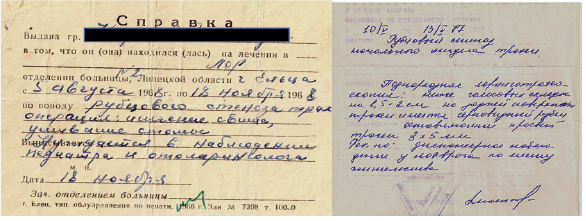 Справка
Выдана гр.
в том, что он (она) находился (лась) на лечении в
№2 Лор
отделении больницы, Липецкой области г Ельца
с 5 августа 1968 г. по 18 ноября 1968
по поводу рубцового стеноза трахеи
операция: иссечение свища,
ушивание стомы
Выписывается в наблюдении
педиатра и отоларинголога
м. п.
Дата 18 ноября
Зав. отделением больницы
г. Елец, тип. облуправления по печати, 1966 г. Зак № 7398 т. 100.0
10/V 13/V 87
Рубцовый стеноз
начального отдела трахеи
на 1,5-2 см на задней поверхности
трахеи имеется
просвет
трахеи 8 x 5 мм.
диспансерное наблю-
дение у лорврача по месту
жительства